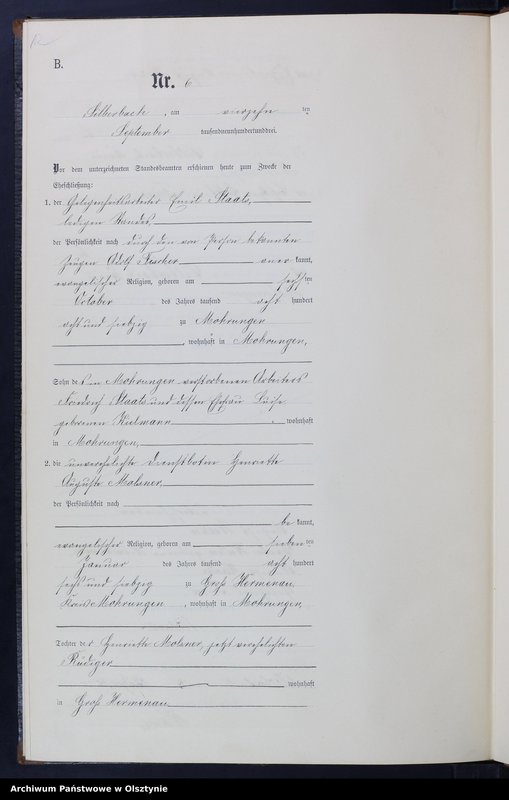 B.
Nr. 6
Silberbach, am vierzehn ten
September tausendneunhundertunddrei.
Vor dem unterzeichneten Standesbeamten erschienen heute zum Zwecke der
Eheschließung:
1. der Gelegenheitsarbeiter Emil Staats,
ledigen Standes,
der Persönlichkeit nach durch den von Person bekannten
Zeugen Adolf Fischer aner kannt,
evangelischer Religion, geboren am sechs ten
October des Jahres tausend acht hundert
acht und siebzig zu Mohrungen
, wohnhaft in Mohrungen,
Sohn des in Mohrungen verstorbenen Arbeiters
Friedrich Staats und dessen Ehefrau Luise
geborenen Kielmann wohnhaft
in Mohrungen,
2. die unverehelichte Dienstboten Henriette
Auguste Molsner,
der Persönlichkeit nach
be kannt,
evangelischer Religion, geboren am sieben ten
Januar des Jahres tausend acht hundert
sechs und siebzig zu Groß Hermenau
Kreis Mohrungen, wohnhaft in Mohrungen,
Tochter der Henriette Molsner, jetzt verehelichten
Rüdiger
wohnhaft
in Groß Hermenau
Archiwum Państwowe w Olsztynie